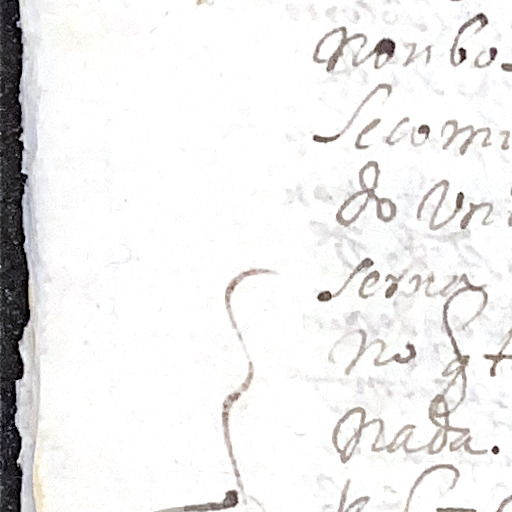 nonbo
Secomi
do Uni
serna
no q t
nada.